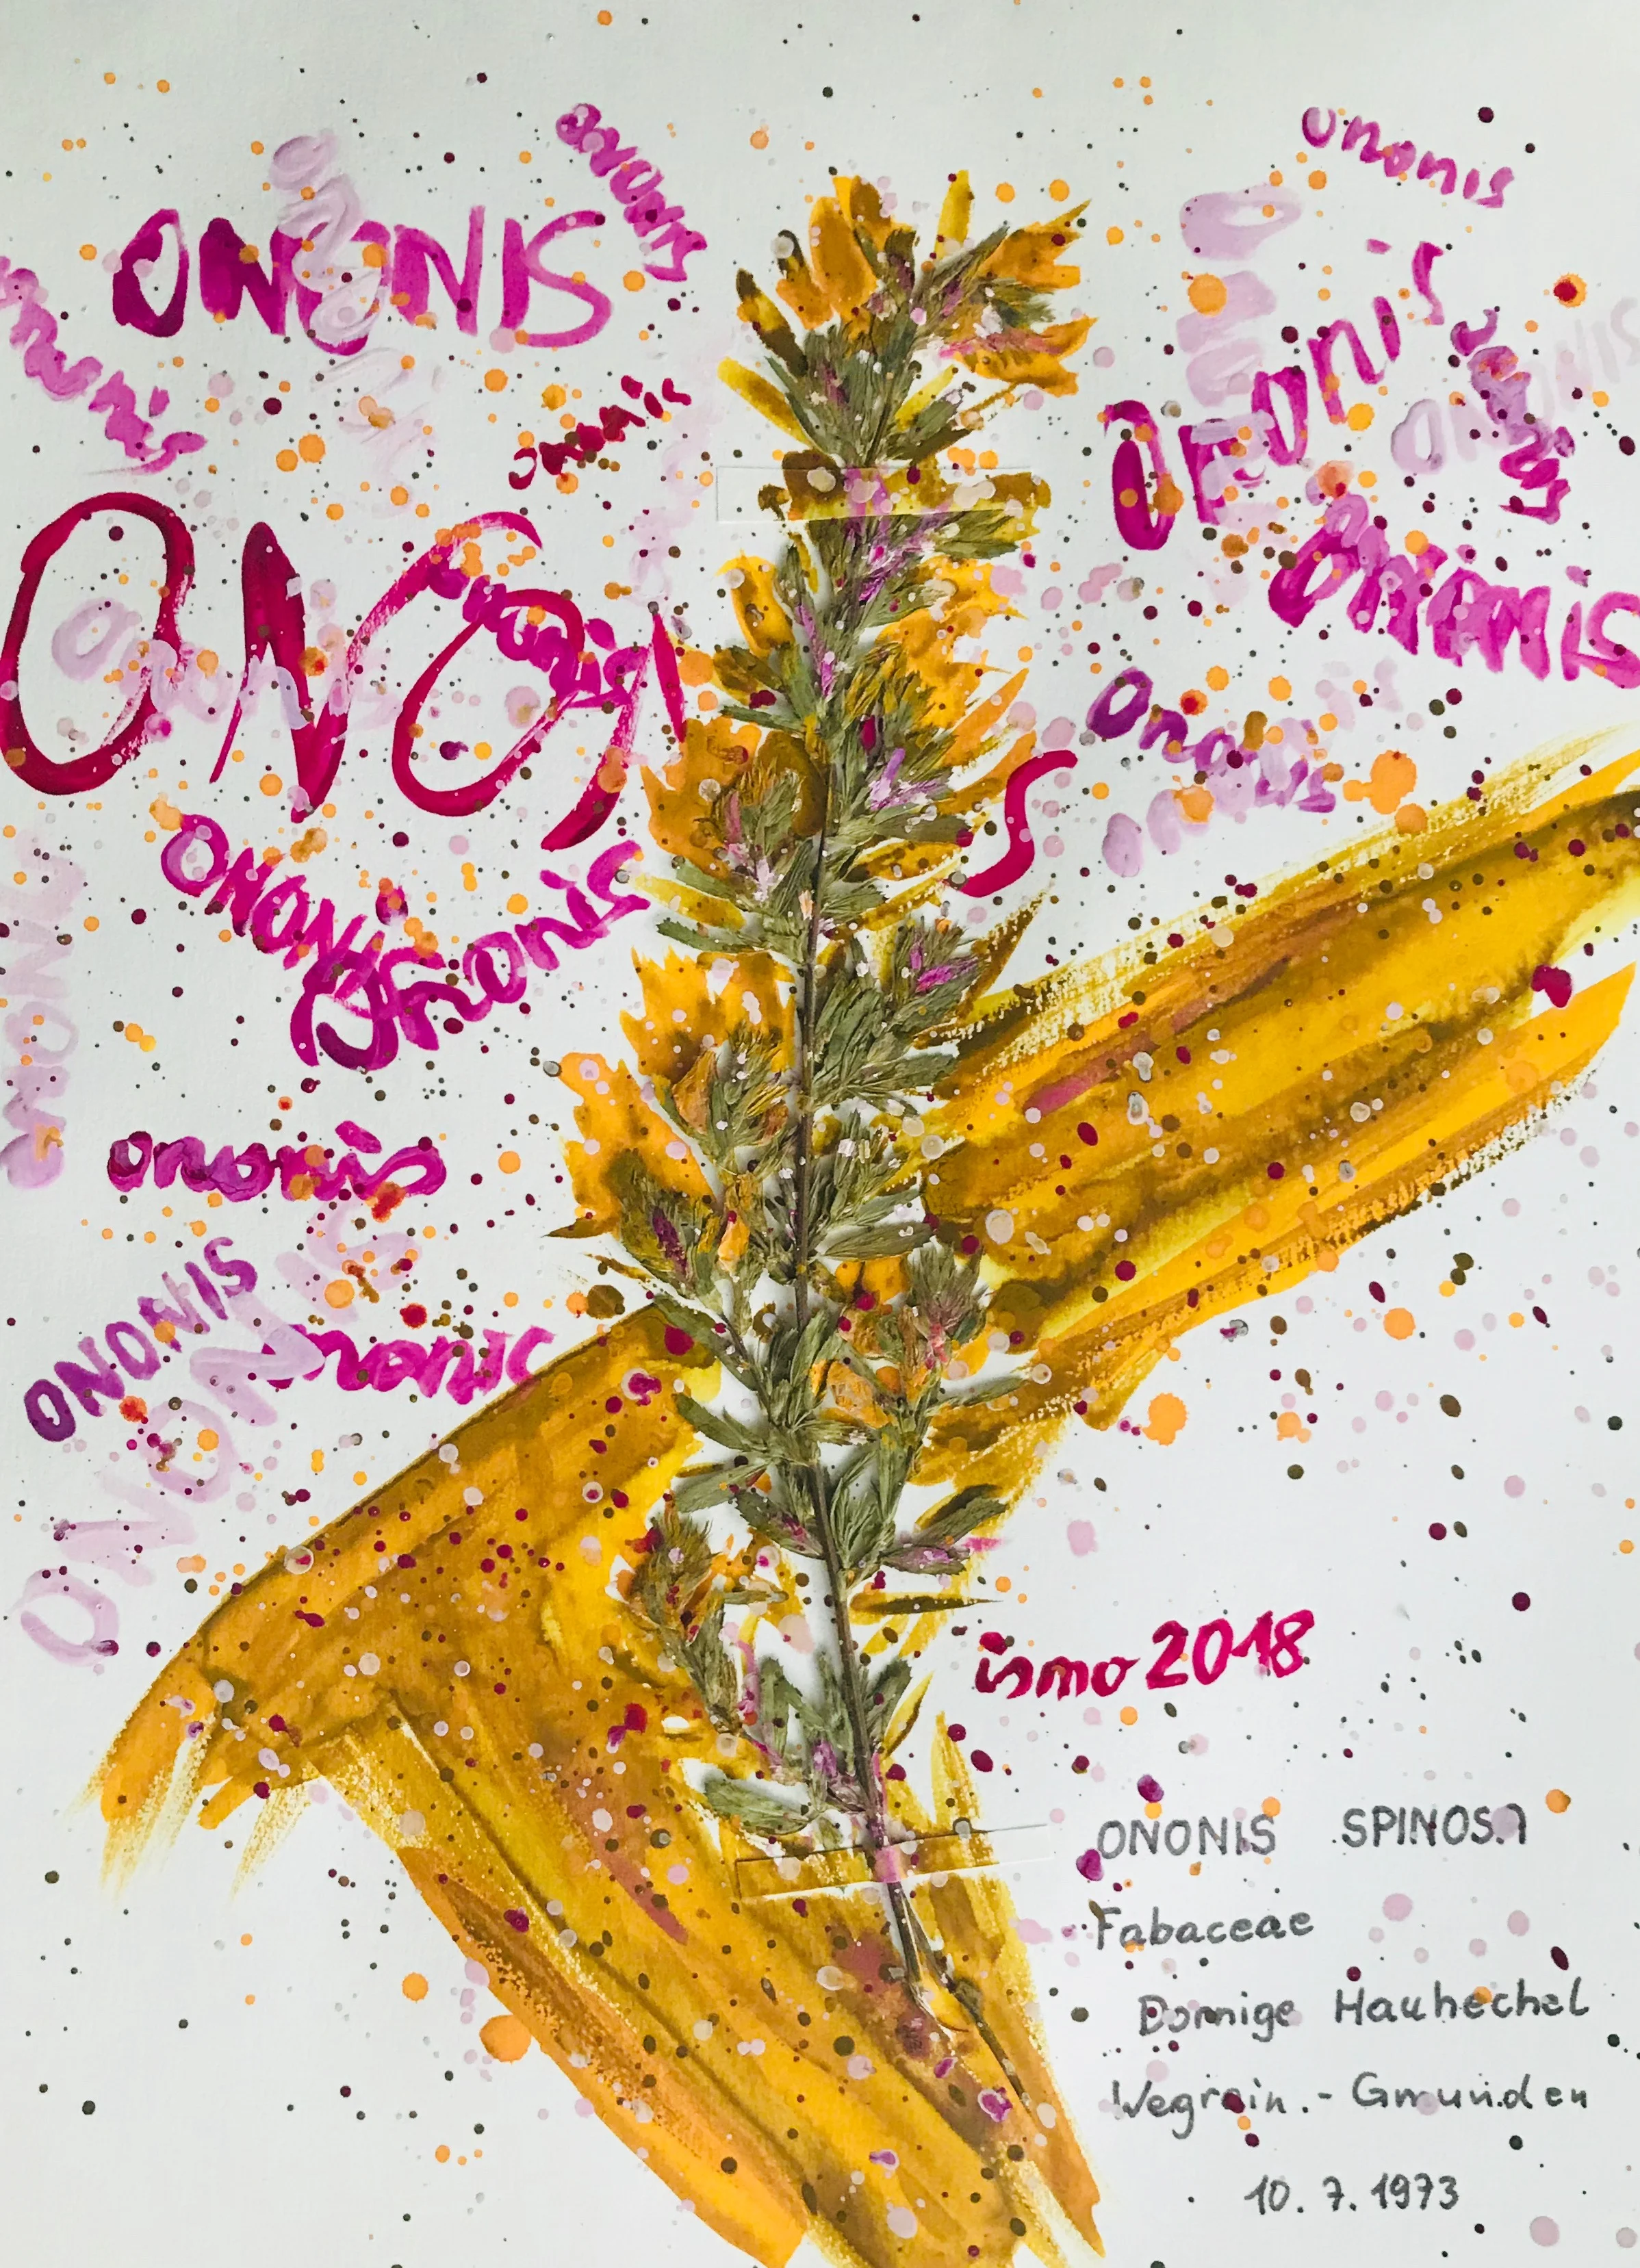 ononis
ononis
ONONIS
ononis
ononis
ononis
ononis
ononis
ONONIS
ONONIS
Ononis
ononis
ONONIS
Ononis
ononis
ononis
ONONIS
ononis
ONONIS
ismo 2018
ONONIS SPINOSA
Fabaceae
Dornige Hauhechel
Wegrain.- Gmunden
10. 7. 1973